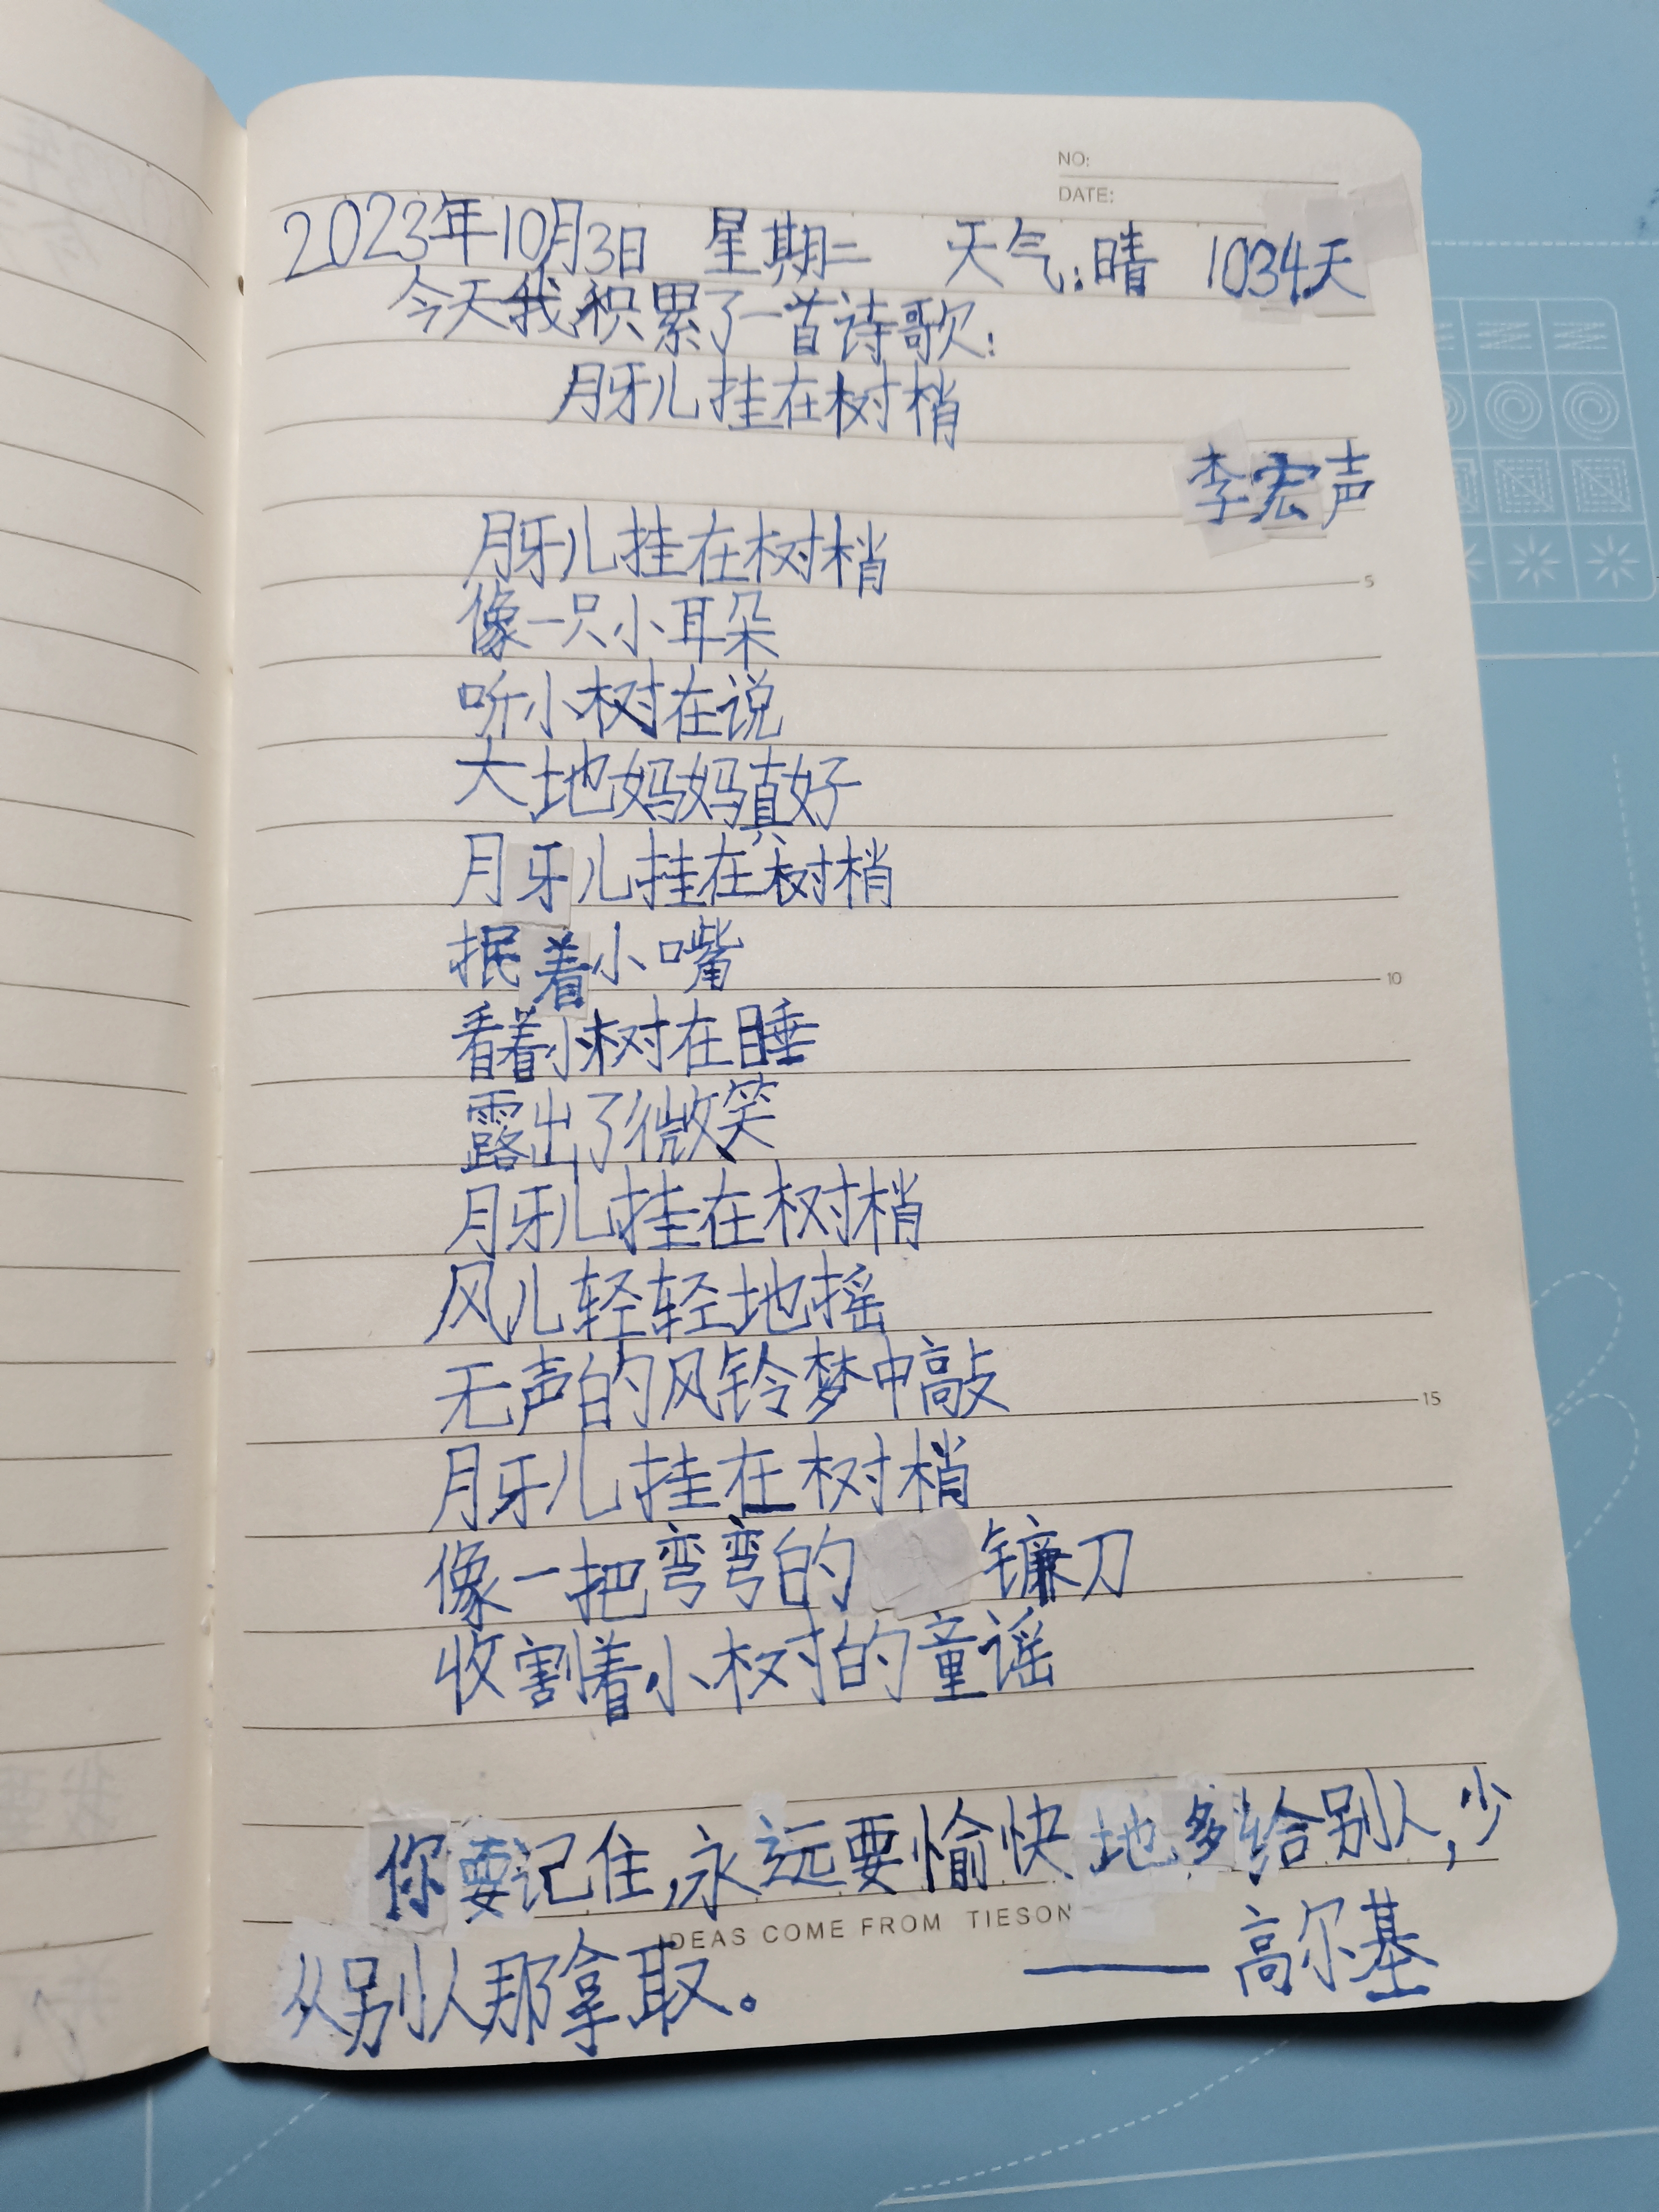 NO:
DATE:
2023年10月3日 星期二 天气:晴 1034天
今天我积累了一首诗歌:
月牙儿挂在树梢
李宏声
月牙儿挂在树梢
像一只小耳朵
听小树在说
大地妈妈真好
月牙儿挂在树梢
抿着小嘴
看着小树在睡
露出了微笑
月牙儿挂在树梢
风儿轻轻地摇
无声的风铃梦中敲
月牙儿挂在树梢
像一把弯弯的镰刀
收割着小树的童谣
你要记住,永远要愉快地多给别人,少
从别人那拿取。 ——高尔基
IDEAS COME FROM TIESON
5
10
15